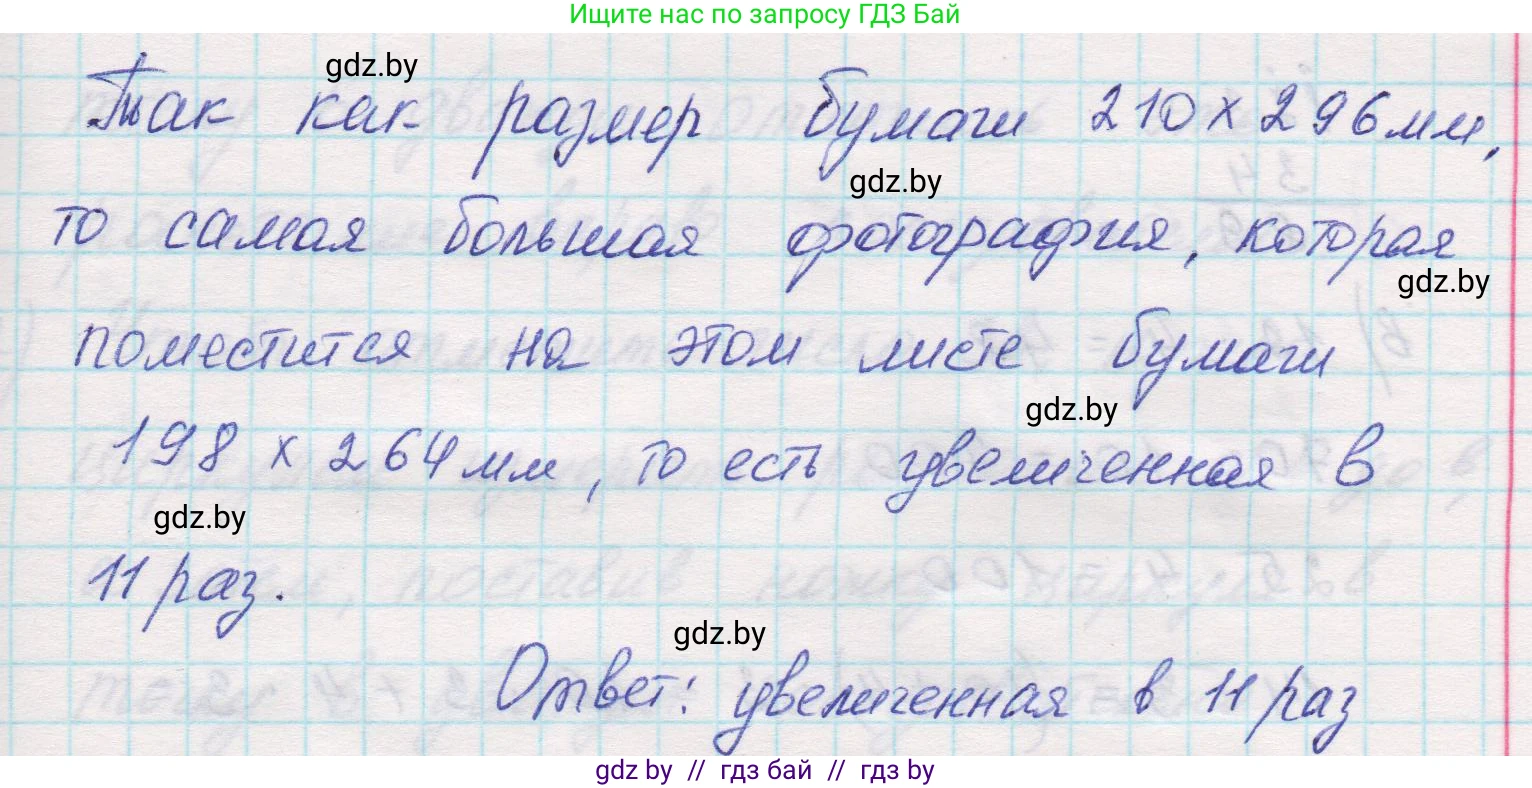 Ищите нас по запросу ГДЗ Бай
gdz.by
Так как размер бумаги 210 х 296 мм,
gdz.by
то самая большая фотография, которая
gdz.by
поместится на этом листе бумаги
gdz.by
198 х 264 мм, то есть увеличенная в
gdz.by
11 раз.
gdz.by
Ответ: увеличенная в 11 раз
gdz by // гдз бай // гдз by